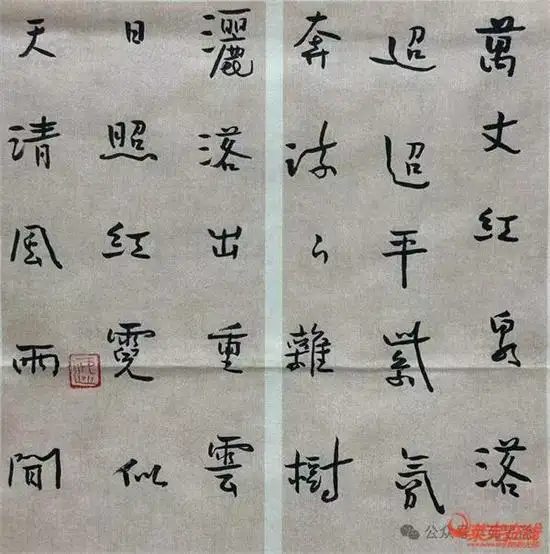 萬丈紅泉落
迢迢平紫氛
奔流下雜樹
灑落出重雲
日照紅霓似
天清風雨聞
公众号
莱芜在线